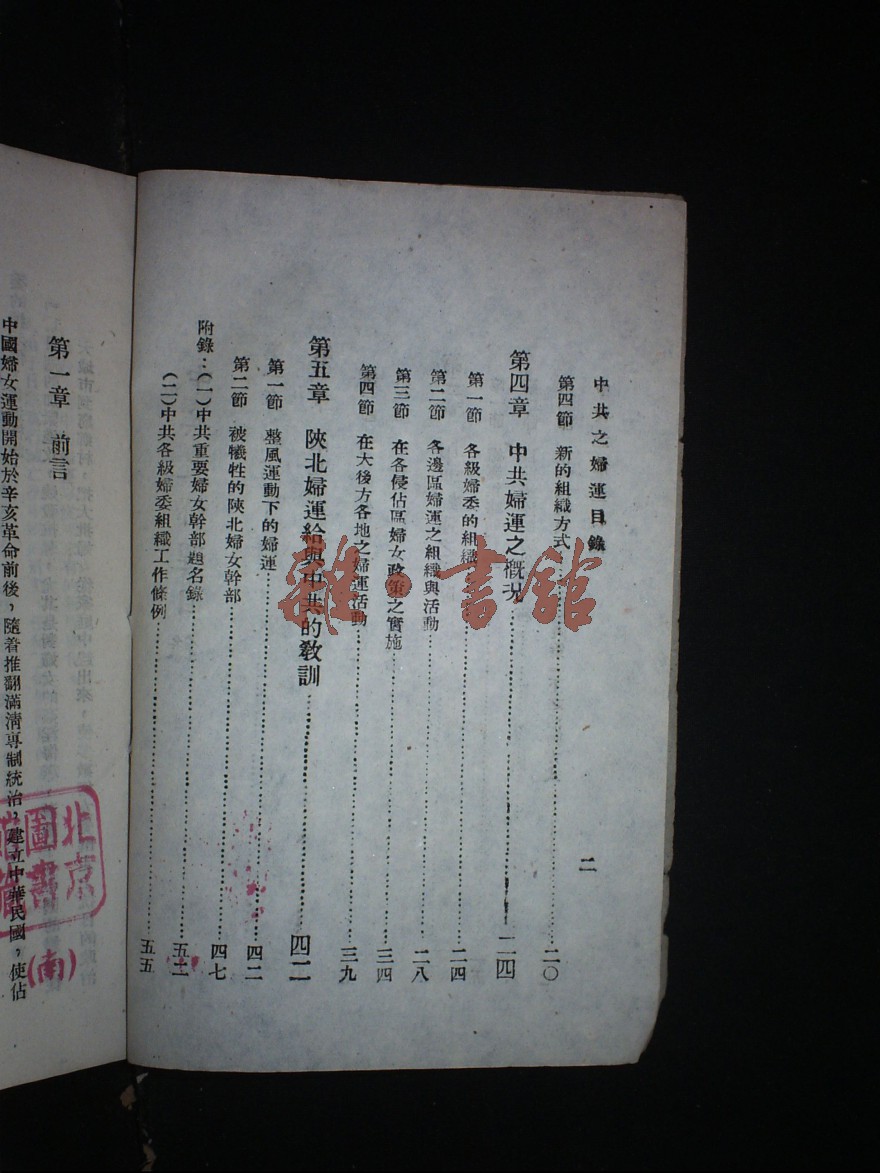 中共之婦運目錄
二
第四節 新的組織方式……二〇
第四章 中共婦運之概況……二四
第一節 各級婦委的組織……二四
第二節 各邊區婦運之組織與活動……二八
第三節 在各侵佔區婦女政策之實施……三四
第四節 在大後方各地之婦運活動……三九
第五章 陝北婦運給與中共的教訓……四二
第一節 整風運動下的婦運……四二
第二節 被犧牲的陝北婦女幹部……四七
附錄：(一)中共重要婦女幹部題名錄……五二
(二)中共各級婦委組織工作條例……五五
第一章 前言
中國婦女運動開始於辛亥革命前後，隨着推翻滿清專制統治，建立中華民國，使佔
雜·書館
北京
圖書
館藏
(南)